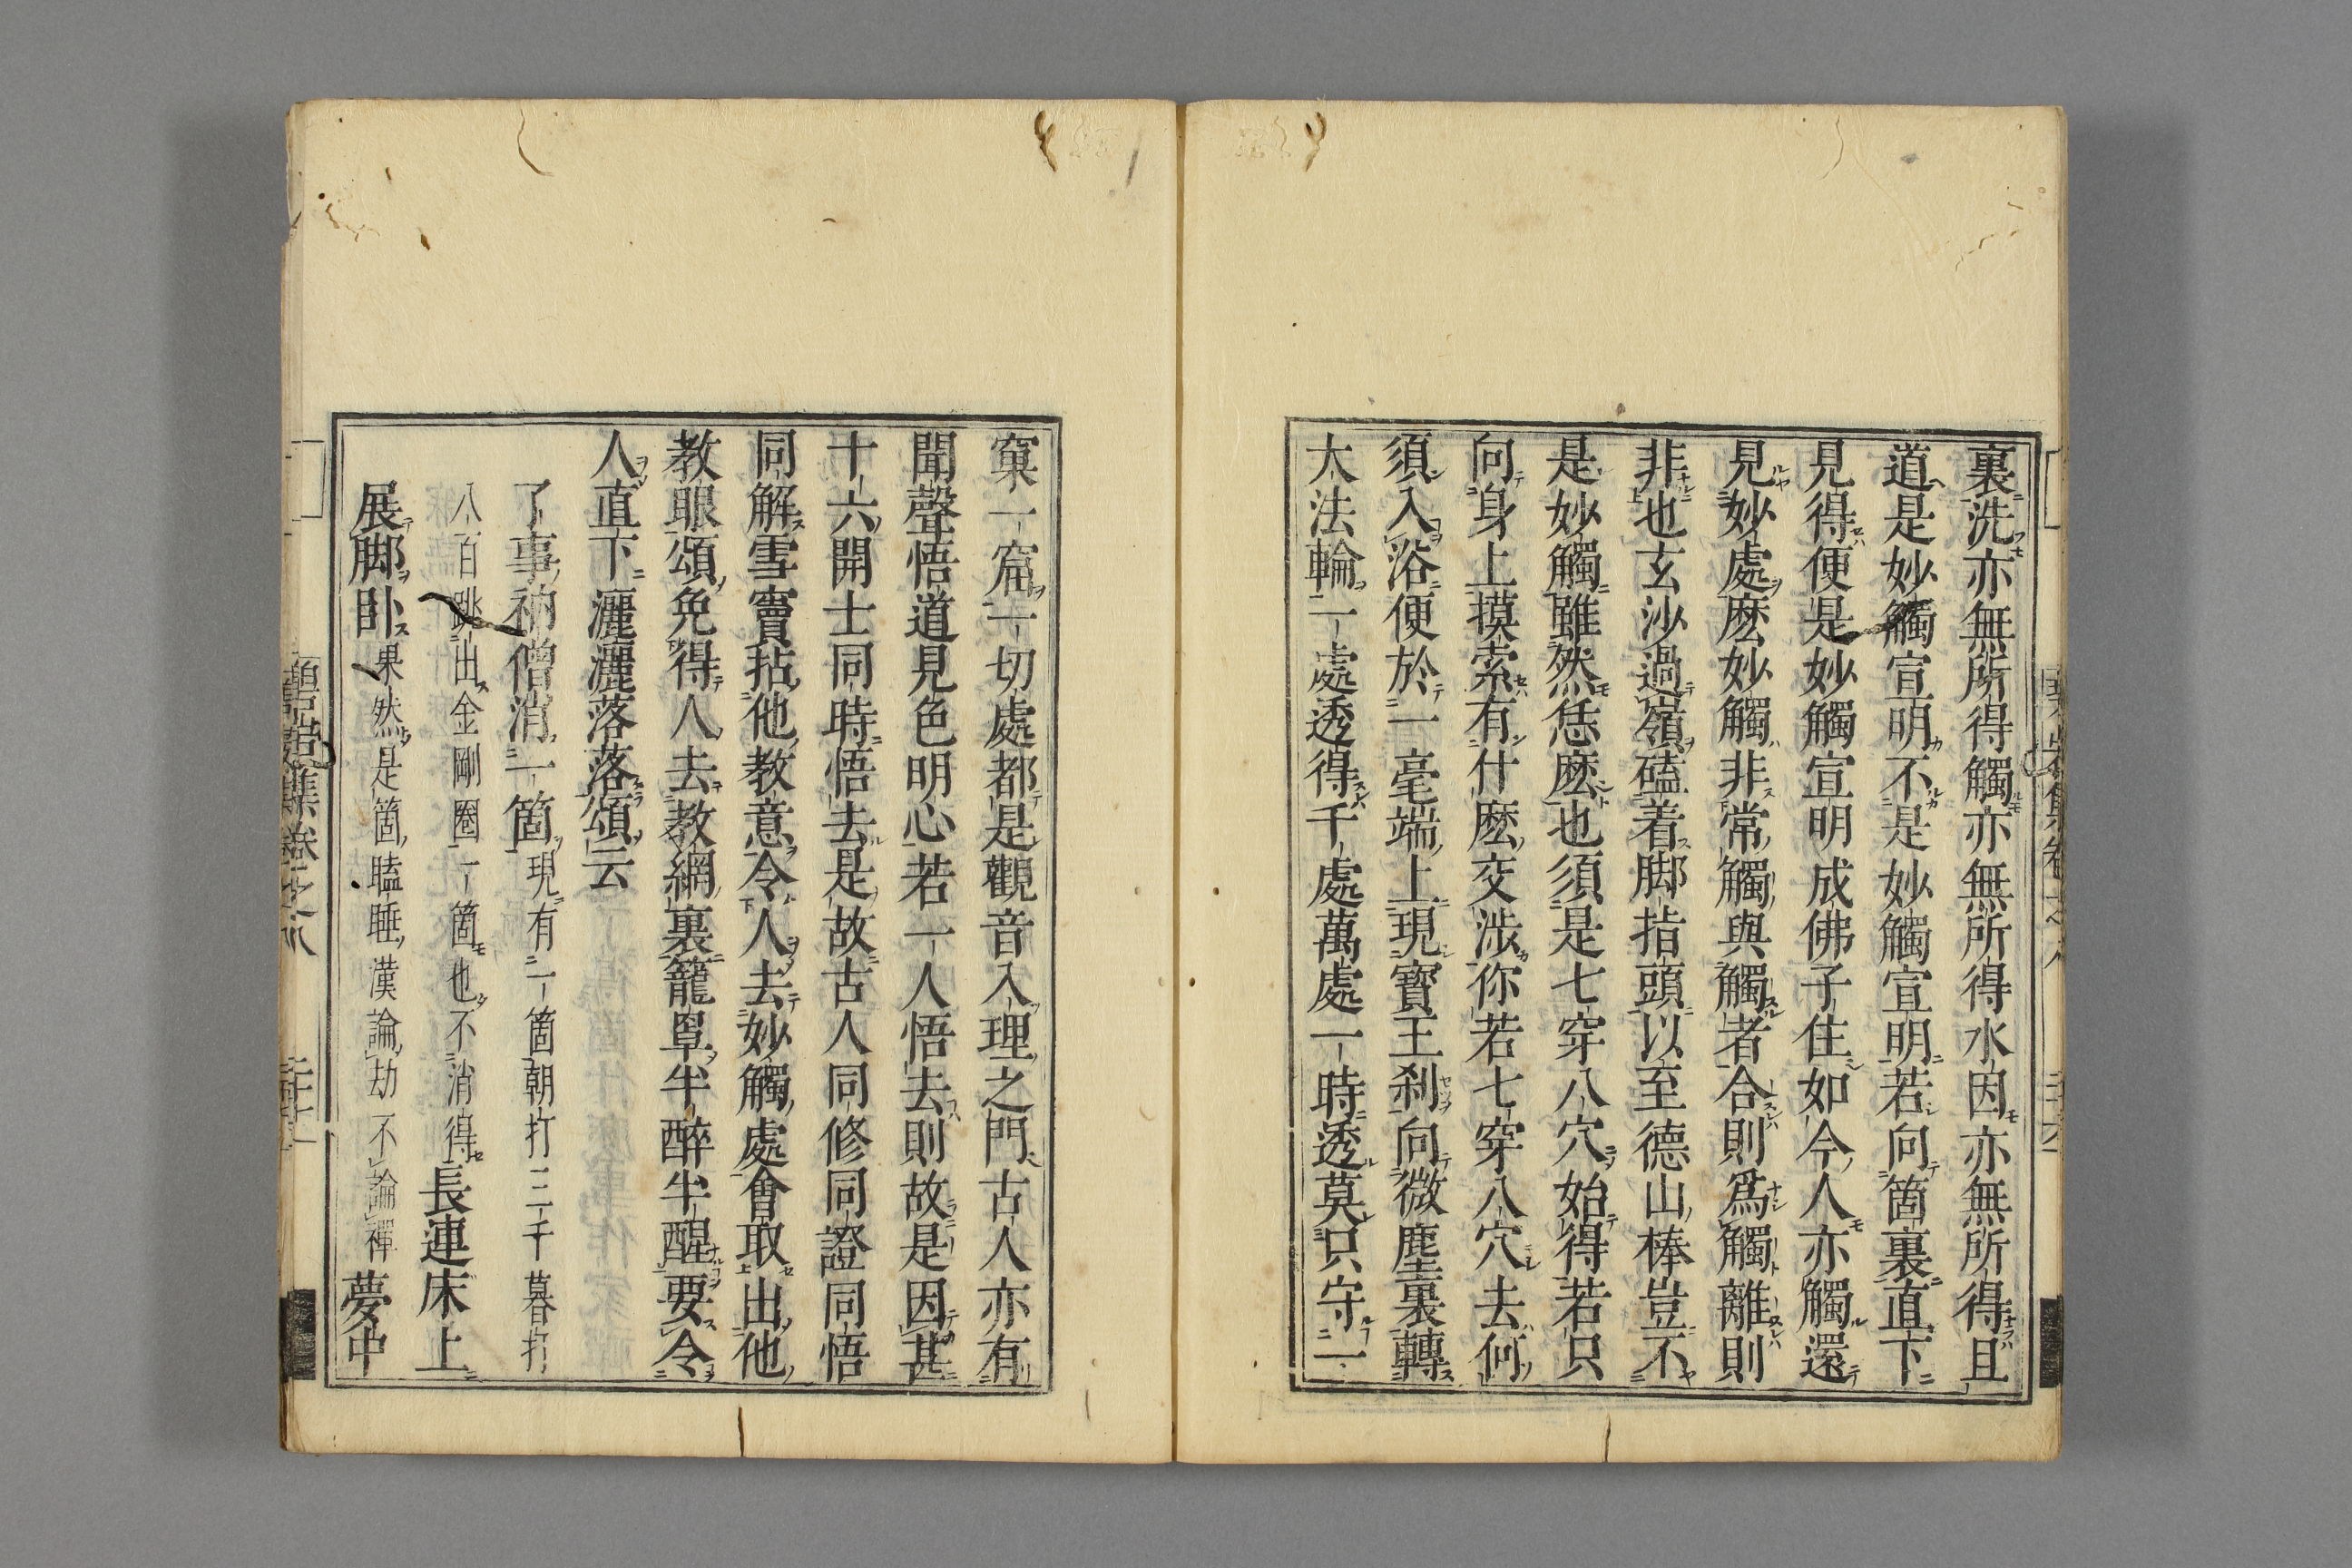 裏洗亦無所得觸亦無所得水因亦無所得且
道是妙觸宣明不是妙觸宣明若向箇裏直下
見得便是妙觸宣明成佛子住如今人亦觸還
見妙處麽妙觸非常觸與觸者合則爲觸離則
非也玄沙過嶺磕着脚指頭以至德山棒豈不
是妙觸雖然恁麽也須是七穿八穴始得若只
向身上摸索有什麽交渉你若七穿八穴去何
須入浴便於一毫端上現寳王刹向微塵裏轉
大法輪一處透得千處萬處一時透莫只守一
窠一窟一切處都是觀音入理之門古人亦有
聞聲悟道見色明心若一人悟去則故是因甚
十六開士同時悟去是故古人同修同證同悟
同解雪竇拈他教意令人去妙觸處會取出他
教眼頌免得人去教網裏籠罩半醉半醒要令
人直下灑灑落落頌云
了事衲僧消一箇現有一箇朝打三千暮打
八百跳出金剛圈一箇也不消得長連床上
展脚臥果然是箇瞌睡漢論劫不論禪夢中
碧岩集卷之八